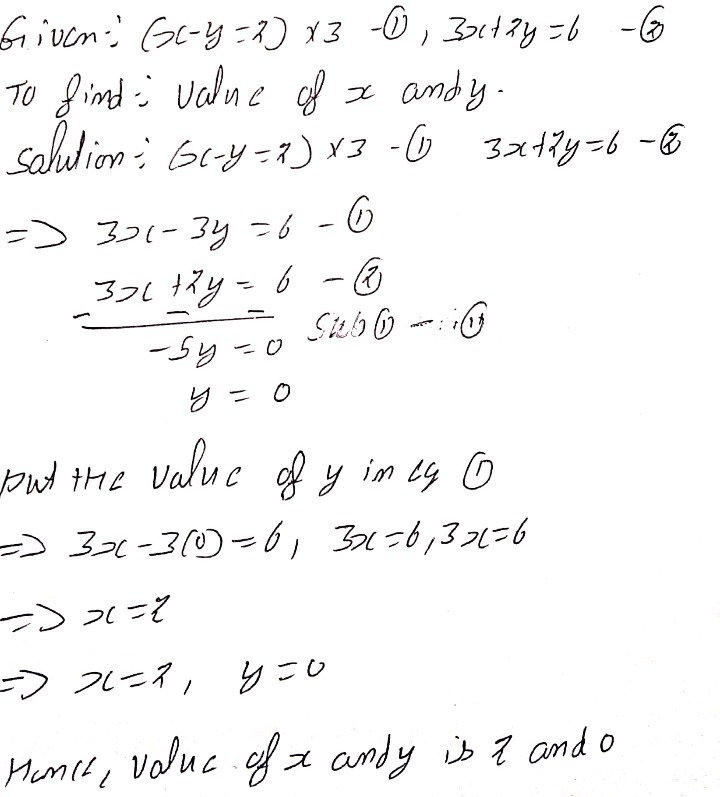 Given :- (x-y=2) x3 -①, 3x+2y=6 -②
To find :- value of x and y.
Solution :- (x-y=2) x3 -① 3x+2y=6 -②
=> 3x-3y=6 -①
3x+2y=6 -②
- - -
-5y=0 Sub ①
y=0
put the value of y in eq ①
=> 3x-3(0)=6, 3x=6, 3x=6
=> x=2
=> x=2, y=0
Hence, value of x and y is 2 and 0